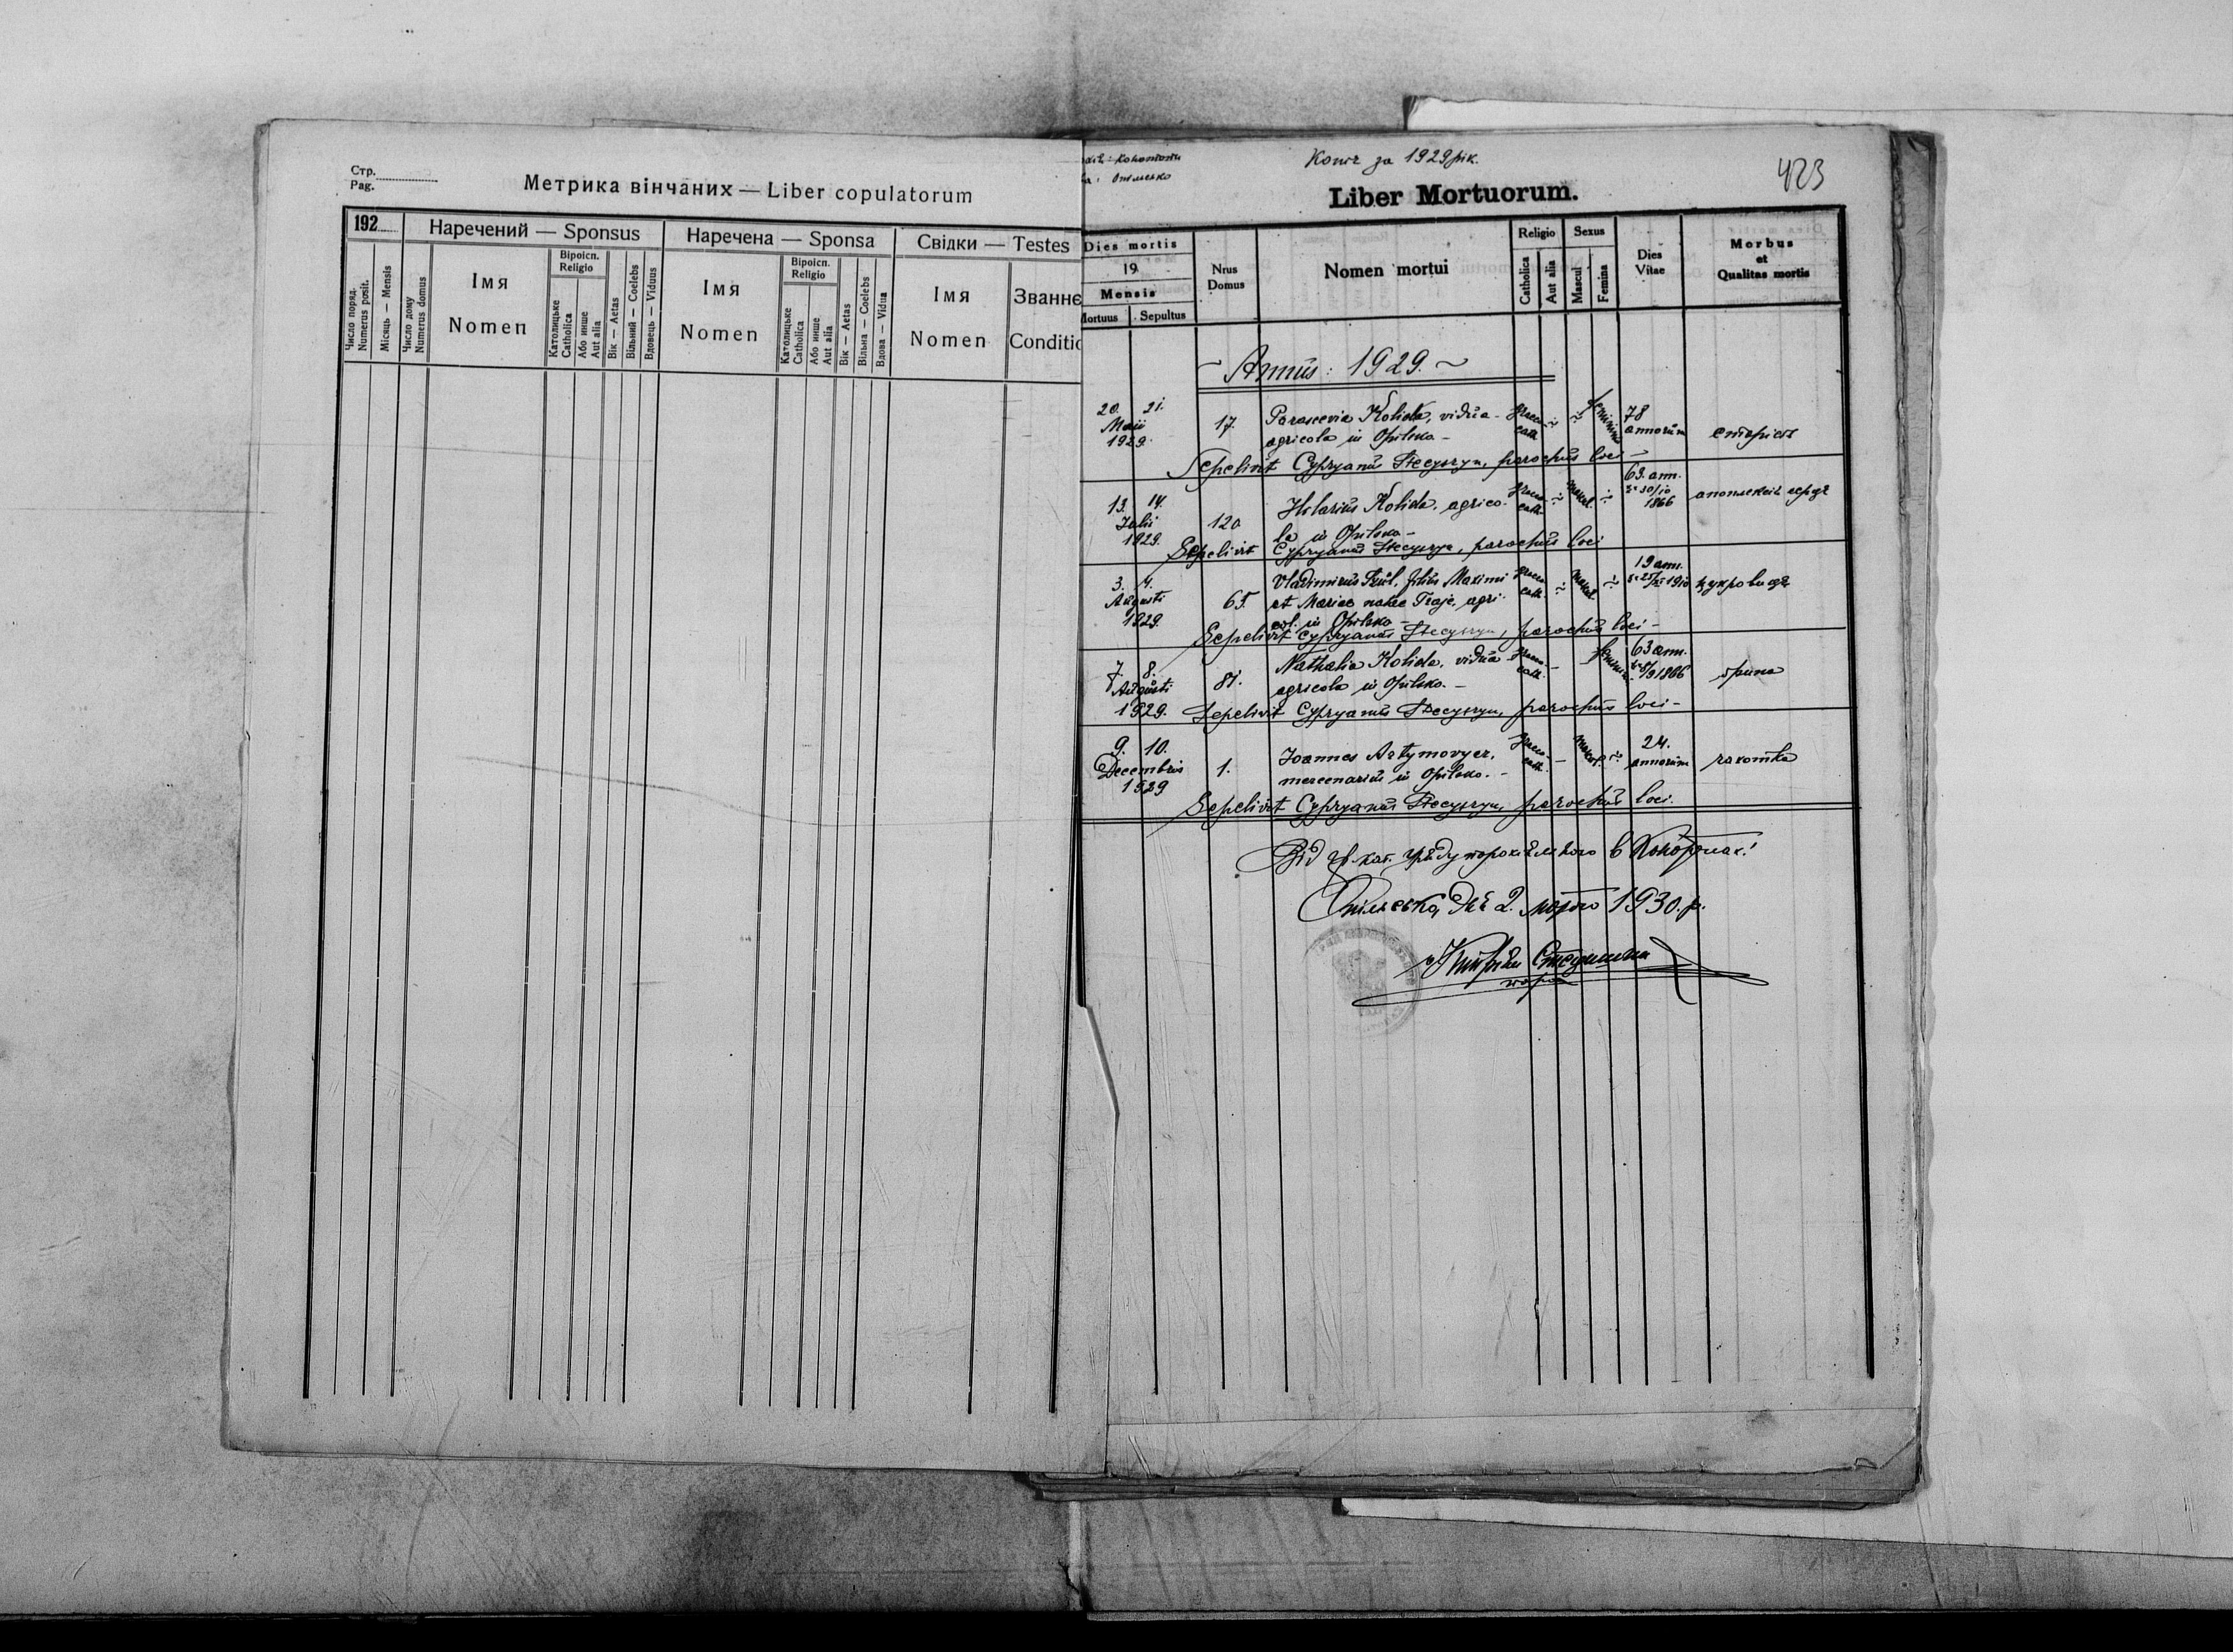 Стр.
Pag.
Метрика вінчаних — Liber copulatorum
192
Наречений — Sponsus
Наречена — Sponsa
Свідки — Testes
Число поряд.
Numerus posit.
Місяць — Mensis
Число дому
Numerus domus
Імя
Nomen
Віроісп.
Religio
Католицьке
Catholica
Або инше
Aut alia
Вік — Aetas
Вільний — Coelebs
Вдовець — Viduus
Імя
Nomen
Віроісп.
Religio
Католицьке
Catholica
Або инше
Aut alia
Вік — Aetas
Вільна — Coelebs
Вдова — Vidua
Імя
Nomen
Званнє
Conditio
Копія за 1929 рік.
423
Liber Mortuorum.
Dies mortis
19
Mensis
Mortuus
Sepultus
Nrus
Domus
Nomen mortui
Religio
Catholica
Aut alia
Sexus
Mascul
Femina
Dies
Vitae
Morbus
et
Qualitas mortis
~ Annus: 1929. ~
20. 21.
Maii
1929.
17.
Parascevia Kolida, vidua
agricola in Opilsko -
graeco
cath.
feminin
78
annorum
старість
Sepelivit Cypryanus Stecyszyn, parochus loci -
13. 14.
Julii
1929.
120
Hilarius Kolida, agrico-
la in Opilsko -
graeco
cath.
mascul.
63. ann.
30/10
1866
апоплексія серця
Sepelivit Cypryanus Stecyszyn, parochus loci
3. 4.
Augusti
1929.
65.
Vladimirus filius Maximi
et Mariae natae agri-
col. in Opilsko -
graeco
cath.
mascul.
19 ann.
1910
Sepelivit Cypryanus Stecyszyn, parochus loci -
7. 8.
Augusti
1929.
81.
Nathalia Kolida, vidua
agricola in Opilsko. -
graeco
cath.
feminin.
63 ann.
1866
Sepelivit Cypryanus Stecyszyn, parochus loci -
9. 10.
Decembris
1929
1.
Joannes Artymovycz,
mercenarius in Opilsko. -
graeco
cath.
mascul.
24.
annorum
Sepelivit Cypryanus Stecyszyn, parochus loci.
Від гр. кат. Уряду парохіяльного в
Опільсько, дня 2. 1930. р.
Кипріян Стецишин
парох